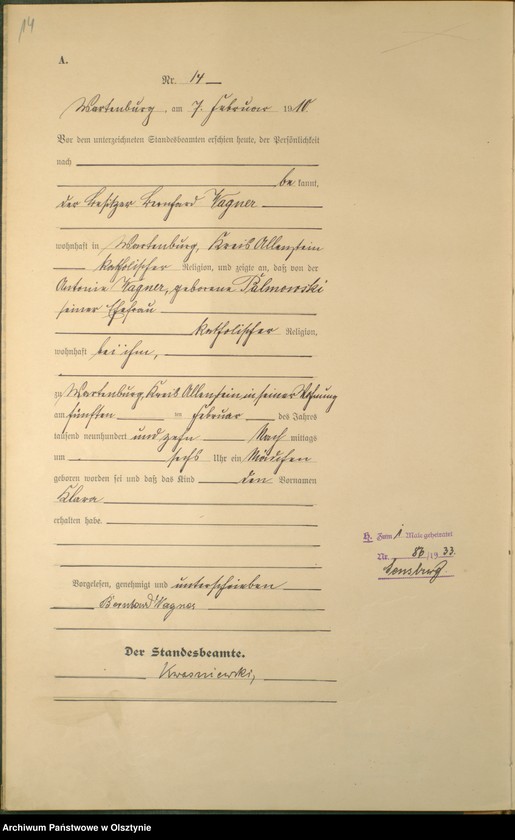 14
A.
Nr. 14
Wartenburg, am 7. Februar 1910.
Vor dem unterzeichneten Standesbeamten erschien heute, der Persönlichkeit
nach
be kannt,
der Besitzer Bernhard Wagner
wohnhaft in Wartenburg, Kreis Allenstein
katholischer Religion, und zeigte an, daß von der
Antonie Wagner, geborene Palmowski
seiner Ehefrau
katholischer Religion,
wohnhaft bei ihm,
zu Wartenburg, Kreis Allenstein in seiner Wohnung
am fünften im Februar des Jahres
tausend neunhundert und zehn Nach mittags
um sechs Uhr ein Mädchen
geboren worden sei und daß das Kind den Vornamen
Klara
erhalten habe.
H. Zum 1 Male geheiratet
Nr. 1933.
Sensburg.
Vorgelesen, genehmigt und unterschrieben
Bernhard Wagner
Der Standesbeamte.
Archiwum Państwowe w Olsztynie